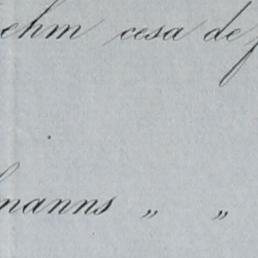 ehm cesa de
manns " "